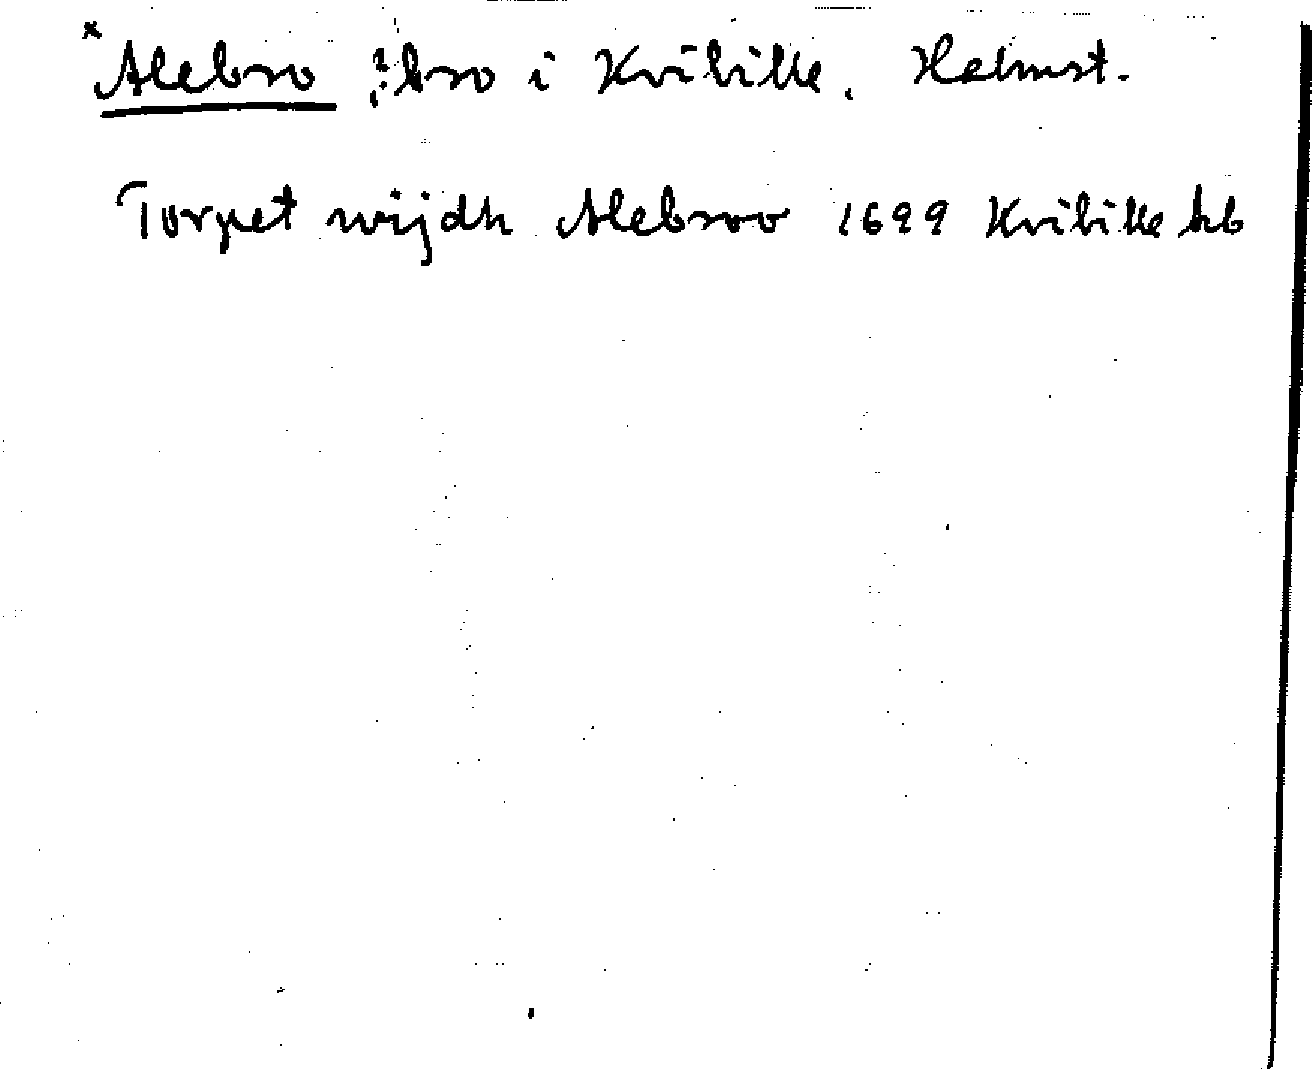 x Alebro, ? bro i Kvibille, Halmst.
Torpet wijdh Alebroo 1699 Kvibille kb